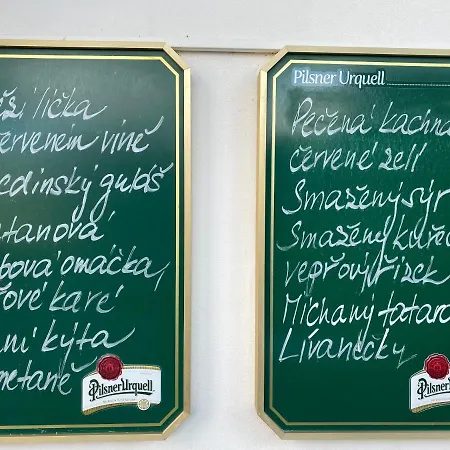 ězí líčka
ervením víně
edínský guláš
štanová
bová omáčka,
řové karé
ní kýta
metaně
Pilsner Urquell
Pilsner Urquell
Pečená kachna
červené zelí
Smažený sýr
Smažený kuřec
vepřový řízek
Míchaný tatara
Lívanečky
Pilsner Urquell